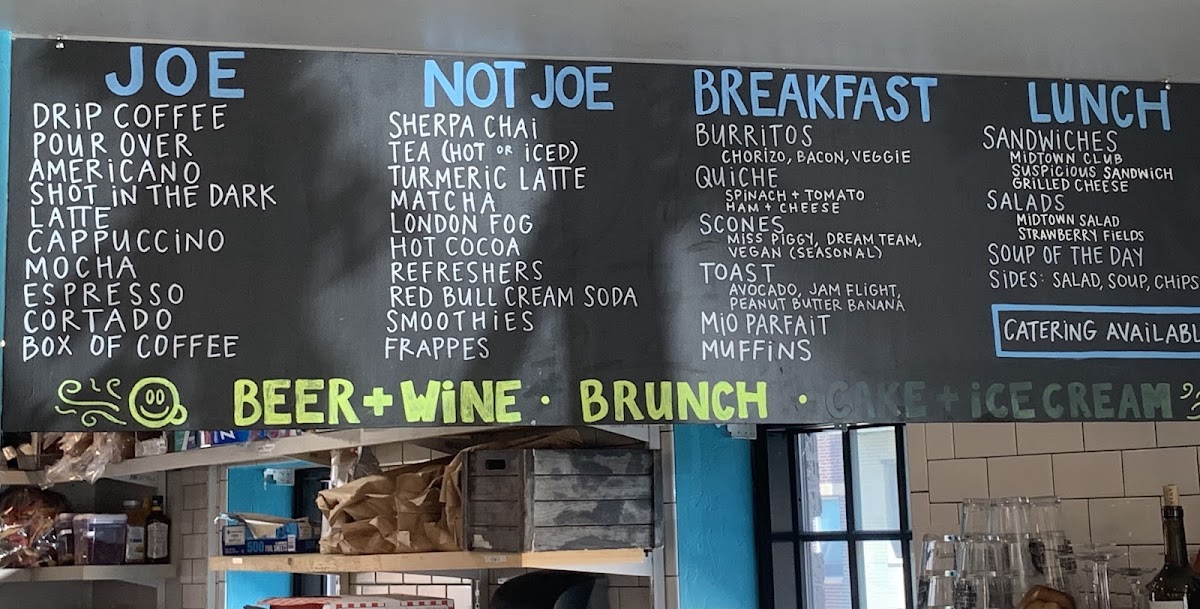 JOE
DRIP COFFEE
POUR OVER
AMERICANO
SHOT IN THE DARK
LATTE
CAPPUCCINO
MOCHA
ESPRESSO
CORTADO
BOX OF COFFEE
NOT JOE
SHERPA CHAI
TEA (HOT OR ICED)
TURMERIC LATTE
MATCHA
LONDON FOG
HOT COCOA
REFRESHERS
RED BULL CREAM SODA
SMOOTHIES
FRAPPES
BREAKFAST
BURRITOS
CHORIZO, BACON, VEGGIE
QUICHE
SPINACH + TOMATO
HAM + CHEESE
SCONES
MISS PIGGY, DREAM TEAM,
VEGAN (SEASONAL)
TOAST
AVOCADO, JAM FLIGHT,
PEANUT BUTTER BANANA
MIO PARFAIT
MUFFINS
LUNCH
SANDWICHES
MIDTOWN CLUB
SUSPICIOUS SANDWICH
GRILLED CHEESE
SALADS
MIDTOWN SALAD
STRAWBERRY FIELDS
SOUP OF THE DAY
SIDES: SALAD, SOUP, CHIPS
CATERING AVAILABL
BEER + WINE · BRUNCH · CAKE + ICE CREAM
500